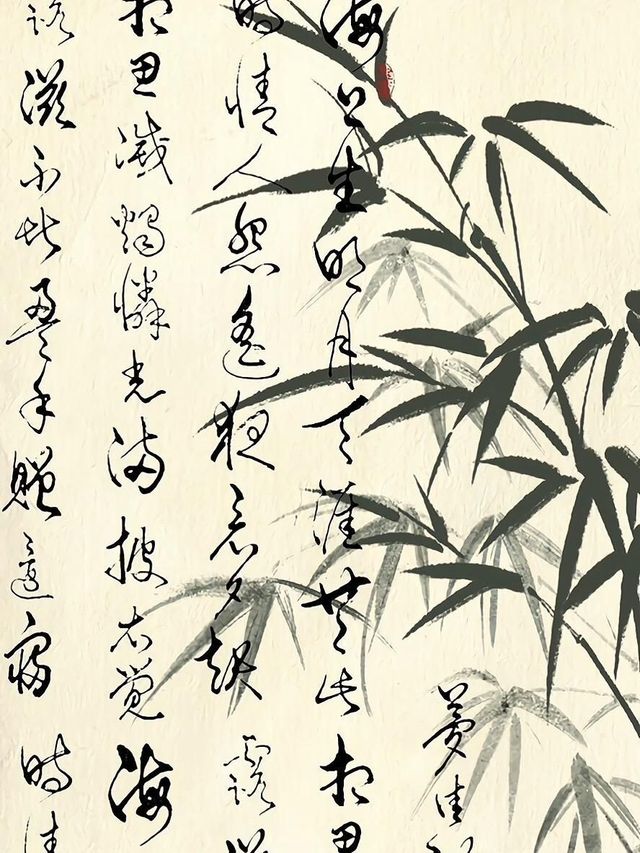 夢佳
海上生明月天涯共此相思
時情人怨遙夜竟夕起露
相思滅燭憐光滿披衣覺海
露滋不堪盈手贈還寢時情